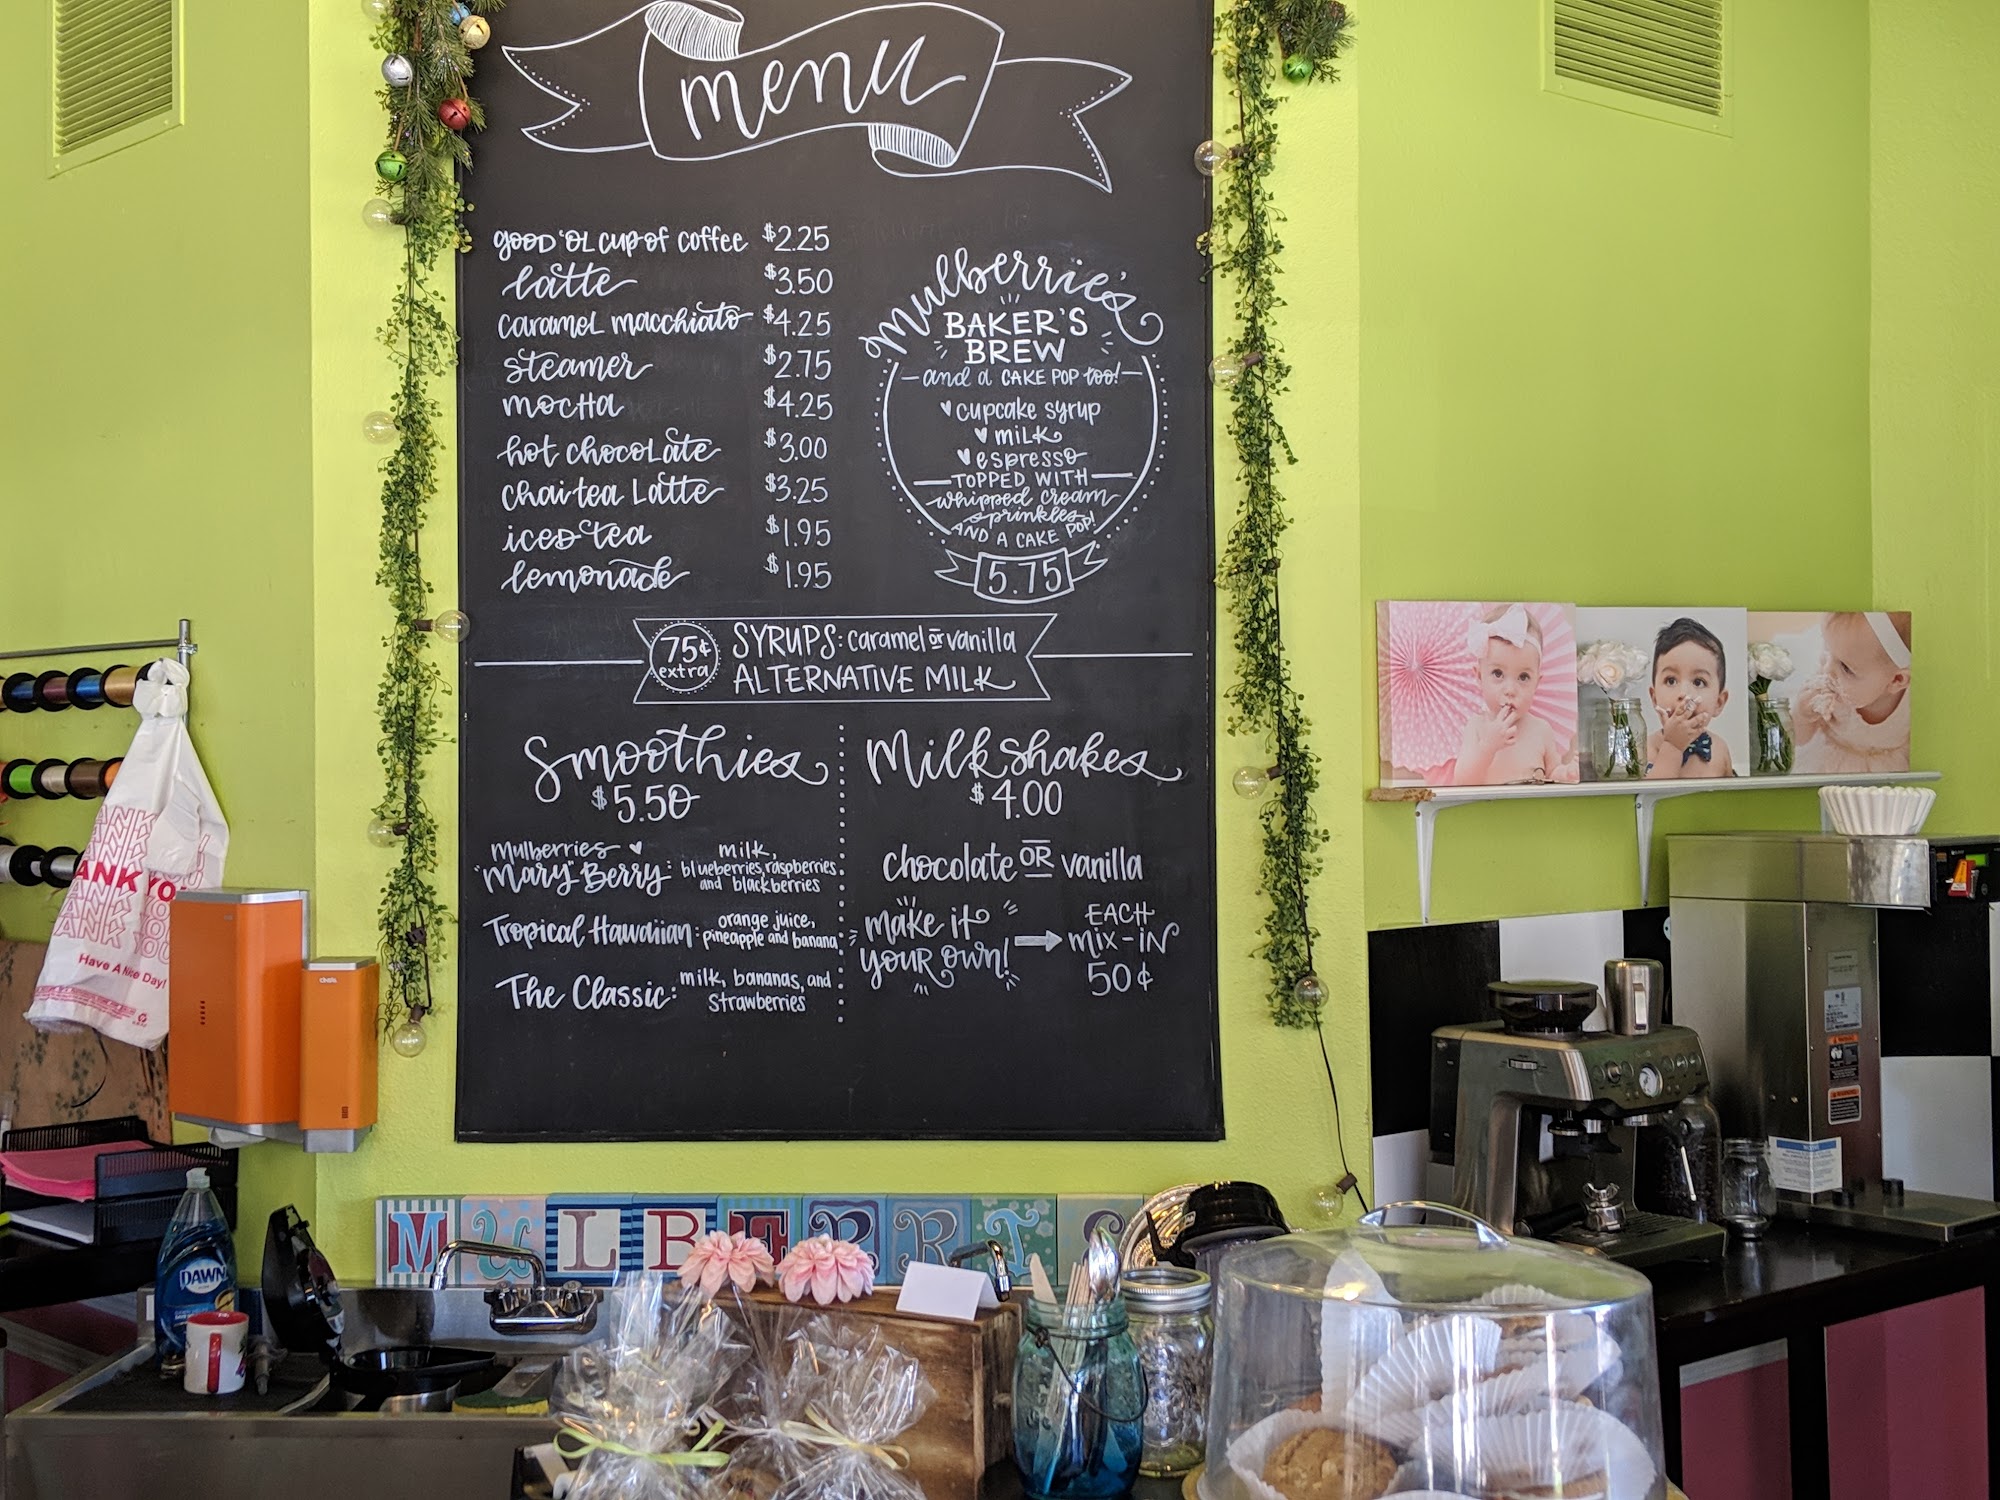 menu
good 'ol cup of coffee $2.25
latte $3.50
caramel macchiato $4.25
steamer $2.75
mocha $4.25
hot chocolate $3.00
chai tea latte $3.25
iced tea $1.95
lemonade $1.95
Mulberrie's
BAKER'S
BREW
and a CAKE POP too!
cupcake syrup
milk
espresso
TOPPED WITH
whipped cream
sprinkles
AND A CAKE POP!
5.75
75¢
extra
SYRUPS: caramel or vanilla
ALTERNATIVE MILK
Smoothies
$5.50
Mulberries
"Mary" Berry: milk,
blueberries, raspberries
and blackberries
Tropical Hawaiian: orange juice,
pineapple and banana
The Classic: milk, bananas, and
strawberries
Milkshakes
$4.00
chocolate OR vanilla
make it
your own!
EACH
mix-in
50¢
THANK YOU
Have A Nice Day!
DAWN
MULBERRI